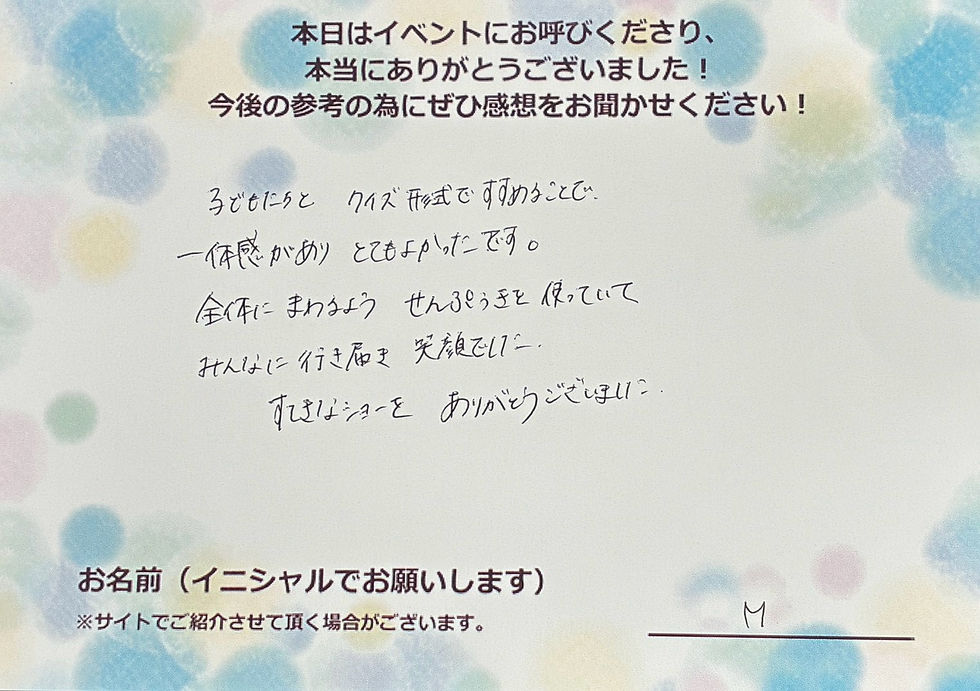 本日はイベントにお呼びくださり、
本当にありがとうございました！
今後の参考の為にぜひ感想をお聞かせください！
子どもたちと クイズ形式ですすめることで、
一体感があり とてもよかったです。
全体にまわるよう せんぷうきを使っていて
みんなに行き届き 笑顔でした．
すてきなショーを ありがとうございました．
お名前（イニシャルでお願いします）
※サイトでご紹介させて頂く場合がございます。
M